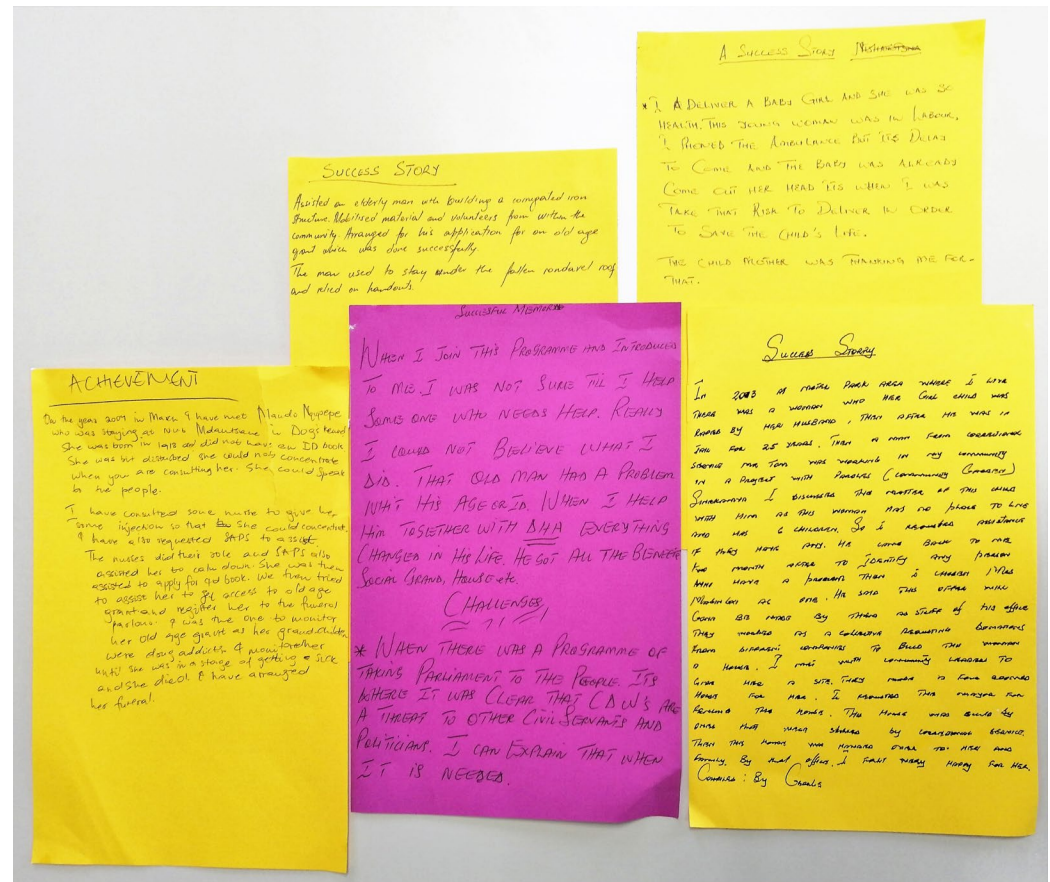 SUCCESS STORY
Assisted an elderly man with building a corrugated iron
structure. Mobilised material and volunteers from within the
community. Arranged for his application for an old age
grant which was done successfully.
The man used to stay under the fallen rondavel roof
and relied on handouts.
A SUCCESS STORY
* I DELIVER A BABY GIRL AND SHE WAS SO
HEALTH. THIS YOUNG WOMAN WAS IN LABOUR,
I PHONED THE AMBULANCE BUT ITS DELAY
TO COME AND THE BABY WAS ALREADY
COME OUT HER HEAD ITS WHEN I WAS
TAKE THAT RISK TO DELIVER IN ORDER
TO SAVE THE CHILD'S LIFE.
THE CHILD MOTHER WAS THANKING ME FOR-
THAT.
ACHIEVEMENT
On the year 2009 in March I have met Maudo
who was staying at Nu6 Mdantsane in
She was born in 1918 and did not have an ID book
She was bit disturbed she could not concentrate
when you are consulting her. She could speak
to the people.
I have consulted some nurse to give her
some injection so that she could concentrate.
I have also requested SAPS to assist
The nurses did their role and SAPS also
assisted her to calm down. She was then
assisted to apply for a id book. We then tried
to assist her to get access to old age
grant and register her to the funeral
parlour. I was the one to monitor
her old age grant as her grandchildren
were drug addicts I monitor her
until she was in a stage of getting sick
and she died I have arranged
her funeral.
SUCCESSFUL MEMORIES
WHEN I JOIN THIS PROGRAMME AND INTRODUCED
TO ME. I WAS NOT SURE TIL I HELP
SOME ONE WHO NEEDS HELP. REALLY
I COULD NOT BELIEVE WHAT I
DID. THAT OLD MAN HAD A PROBLEM
WHIT HIS AGE OR ID. WHEN I HELP
HIM TOGETHER WITH DHA EVERYTHING
CHANGED IN HIS LIFE. HE GOT ALL THE
SOCIAL GRAND, HOUSE etc.
CHALLENGES
* WHEN THERE WAS A PROGRAMME OF
TAKING PARLIAMENT TO THE PEOPLE. ITS
WHERE IT WAS CLEAR THAT CDW'S ARE
A THREAT TO OTHER CIVIL SERVANTS AND
POLITICIANS. I CAN EXPLAIN THAT WHEN
IT IS NEEDED.
Success Storry
In 2003 at PARK AREA WHERE I LIVE
THERE WAS A WOMAN WHO HER GIRL CHILD WAS
RAPED BY HER HUSBAND, THEN AFTER HE WAS IN
JAIL FOR 25 YEARS. THEN A MAN FROM CORRECTIONAL
SERVICE MR TOM WAS WORKING IN MY COMMUNITY
IN A PROJECT WITH (COMMUNITY GARDEN)
I DISCUSSED THE MATTER OF THIS CHILD
WITH HIM AS THIS WOMAN HAS NO PLACE TO LIVE
AND HAS 6 CHILDREN. SO I REQUESTED ASSISTANCE
IF THEY HAVE ANY. HE CAME BACK TO ME
MONTH AFTER TO IDENTIFY ANY PERSON
WHO HAVE A PROBLEM THEN I MRS
AS ONE. HE SAID THIS OFFER WILL
BE MADE BY THEM AS STAFF OF HIS OFFICE
THEY AS A REQUESTING DONATIONS
FROM DIFFERENT COMPANIES TO BUILD THIS WOMAN
A HOUSE. I MET WITH COMMUNITY LEADERS TO
GIVE HER A SITE. THEY A FOUR ROOMED
HOUSE FOR HER. I REQUESTED THIS
THE HOUSE. THE HOUSE WAS BUILD BY
THAT WERE BY CORRECTIONAL SERVICE.
THEN THIS HOUSE WAS HANDED OVER TO HER AND
FAMILY BY THAT OFFICE. I FELT VERY HAPPY FOR HER.
: By